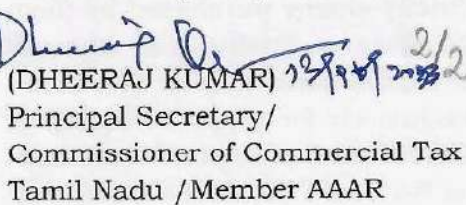 2/2
(DHEERAJ KUMAR)
Principal Secretary/
Commissioner of Commercial Tax
Tamil Nadu /Member AAAR